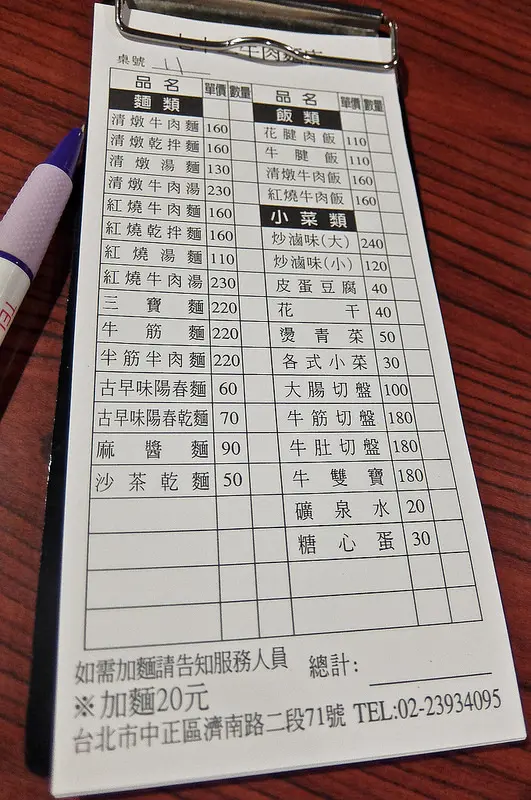 牛肉麵店
桌號 11
品名 單價 數量
麵類
清燉牛肉麵 160
清燉乾拌麵 160
清燉湯麵 130
清燉牛肉湯 230
紅燒牛肉麵 160
紅燒乾拌麵 160
紅燒湯麵 110
紅燒牛肉湯 230
三寶麵 220
牛筋麵 220
半筋半肉麵 220
古早味陽春麵 60
古早味陽春乾麵 70
麻醬麵 90
沙茶乾麵 50
品名 單價 數量
飯類
花腱肉飯 110
牛腱飯 110
清燉牛肉飯 160
紅燒牛肉飯 160
小菜類
炒滷味(大) 240
炒滷味(小) 120
皮蛋豆腐 40
花干 40
燙青菜 50
各式小菜 30
大腸切盤 100
牛筋切盤 180
牛肚切盤 180
牛雙寶 180
礦泉水 20
糖心蛋 30
如需加麵請告知服務人員 總計:
※加麵20元
台北市中正區濟南路二段71號 TEL:02-23934095